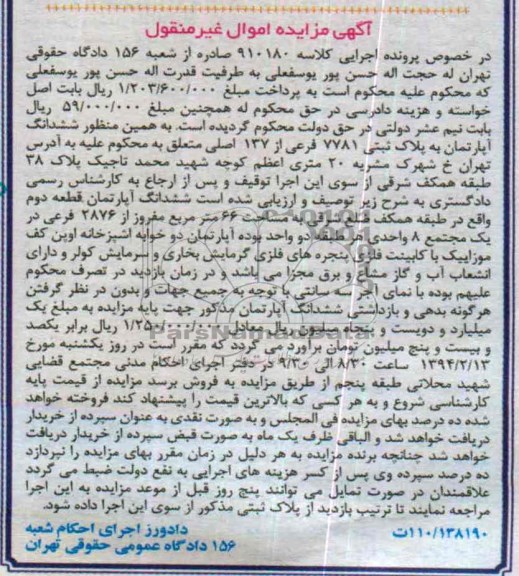 آگهی مزایده اموال غیرمنقول
در خصوص پرونده اجرایی کلاسه ۹۱۰۱۸۰ صادره از شعبه ۱۵۶ دادگاه حقوقی
تهران له حجت اله حسن پور یوسفعلی به طرفیت قدرت اله حسن پور یوسفعلی
که محکوم علیه محکوم است به پرداخت مبلغ ۱/۲۰۳/۶۰۰/۰۰۰ ریال بابت اصل
خواسته و هزینه دادرسی در حق محکوم له همچنین مبلغ ۵۹/۰۰۰/۰۰۰ ریال
بابت نیم عشر دولتی در حق دولت محکوم گردیده است. به همین منظور ششدانگ
آپارتمان به پلاک ثبتی ۷۷۸۱ فرعی از ۱۳۷ اصلی متعلق به محکوم علیه به آدرس
تهران خ شهرک مشیریه ۲۰ متری اعظم کوچه شهید محمد تاجیک پلاک ۳۸
طبقه همکف شرقی از سوی این اجرا توقیف و پس از ارجاع به کارشناس رسمی
دادگستری به شرح زیر توصیف و ارزیابی شده است ششدانگ آپارتمان قطعه دوم
واقع در طبقه همکف ضلع شرقی به مساحت ۶۶ متر مربع مفروز از ۲۸۷۶ فرعی در
یک مجتمع ۸ واحدی هر طبقه دو واحد بوده آپارتمان دو خوابه آشپزخانه اوپن کف
موزاییک با کابینت فلزی پنجره های فلزی گرمایش بخاری و سرمایش کولر و دارای
انشعاب آب و گاز مشاع و برق مجزا می باشد و در زمان بازدید در تصرف محکوم
علیهم بوده با نمای آجر سه سانتی با توجه به جمیع جهات و بدون در نظر گرفتن
هرگونه بدهی و بازداشتی ششدانگ آپارتمان مذکور جهت پایه مزایده به مبلغ یک
میلیارد و دویست و پنجاه میلیون ریال معادل ۱/۲۵۰/۰۰۰/۰۰۰ ریال برابر یکصد
و بیست و پنج میلیون تومان برآورد می گردد که مقرر است در روز یکشنبه مورخ
۱۳۹۴/۲/۱۳ ساعت ۸/۳۰ الی ۹/۳۰ در دفتر اجرای احکام مدنی مجتمع قضایی
شهید محلاتی طبقه پنجم از طریق مزایده به فروش برسد مزایده از قیمت پایه
کارشناسی شروع و به هر کسی که بالاترین قیمت را پیشنهاد کند فروخته خواهد
شده ده درصد بهای مزایده فی المجلس و به صورت نقدی به عنوان سپرده از خریدار
دریافت خواهد شد و الباقی ظرف یک ماه به صورت قبض سپرده از خریدار دریافت
خواهد شد چنانچه برنده مزایده به هر دلیل در زمان مقرر بهای مزایده را نپردازد
ده درصد سپرده وی پس از کسر هزینه های اجرایی به نفع دولت ضبط می گردد
علاقمندان در صورت تمایل می توانند پنج روز قبل از موعد مزایده به این اجرا
مراجعه نمایند تا ترتیب بازدید از پلاک ثبتی مذکور از سوی این اجرا داده شود.
۱۱۰/۱۳۸۱۹۰ت
دادورز اجرای احکام شعبه
۱۵۶ دادگاه عمومی حقوقی تهران